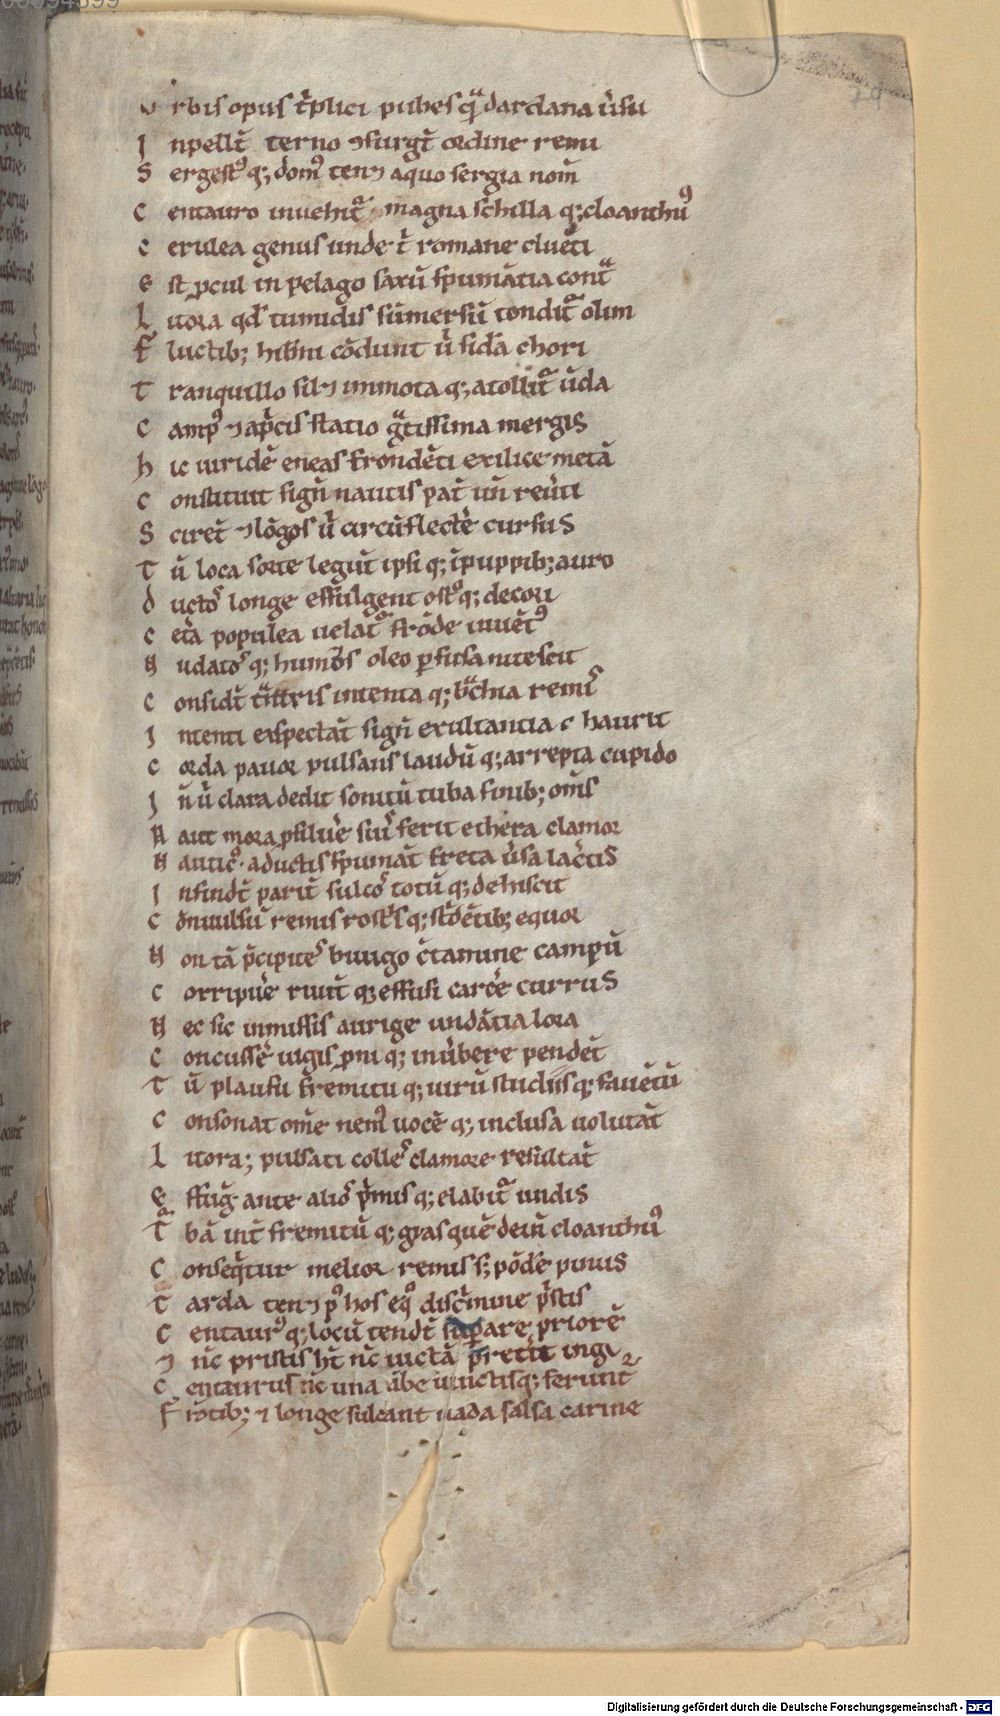 U rbis opus t̄plici pubes q̃ dardana ůsu
I npellt̄ terno ꝯsurgt̄ ordine remi
S ergest᷒ q; dom᷒ ten& aquo sergia nom̄
C entauro inuehit᷑ magna sc̄hilla q; cloanth᷒
C erulea genus unde t̄ romane cluēti
E st ꝓcul in pelago saxū spumātia cont̃
L itora qd̄ tumidis sūmersū tondit᷑ olim
F luctib; hib̄ni cōdunt ů sid̄a chori
T ranquillo sil& inmota q; atollit᷑ ūda
C amp᷒ & ap̄cis statio g̃tissima mergis
h ic uiridē eneas frōndēti exilice metā
C onstituit sign̄ nautis pat̄ un̄ reůti
S ciret̄ & lōgos ů circūflectė cursus
T ū loca sorte legūt ipsi q; īpuppib; auro
d uctor᷒ longe effulgent ostº q; decori
C et̄a populea uelat᷑ frōde iuuēt᷒
N udatoˢ q; hum̄os oleo ꝑfusa nitescit
C onsidt̄ t̃nstris intenta q; b̃chia remiˢ
I ntenti exspectāt sign̄ exultantia c haurit
C orda pauor pulsans laudū q; arrepta cupido
I n̄ ů clara dedit sonitū tuba finib; om̄s
H aut mora ꝓsiluė suiˢ ferit ethera clamor
N auticº aductis spumāt freta ůsa lac̄tis
I nfindt̄ parit̄ sulcoˢ totū q; dehiscit
C onuulsū remis rostˢ q; st̄dētib; equor
N on tā p̄cipiteˢ biiugo c̄tamine campū
C orripuė ruūt q; effusi carcė currus
N ec sic inmissis aurige undātia lora
C oncussė iugis ꝓni q; inůbere pendēt
T ū plausu fremitu q; uirū studiisq; fauētū
C onsonat om̄e nem᷒ uocē q; inclusa uolutāt
L itora; pulsati colleˢ clamore resultāt
E ffuḡ ante alioˢ p̄mis q; elabit᷑ undis
T ̃ bā int̄ fremitū q; gyas quē dein̄ cloanth᷒
C onseq̄tur melior remis s; pōde pinus
T arda ten& p᷒ hos eqº disc̄mine p̄stis
C entaur᷒ q; locū tendt̄ suꝑare priorē
& nc̄ pristis ht̄ nc̄ uictā p̄retit ingēˢ
C entaurus nc̄ una ābe iunctisq; ferunt᷑
F rōtib; & longe sulcant uada salsa carine
Digitalisierung gefördert durch die Deutsche Forschungsgemeinschaft - DFG